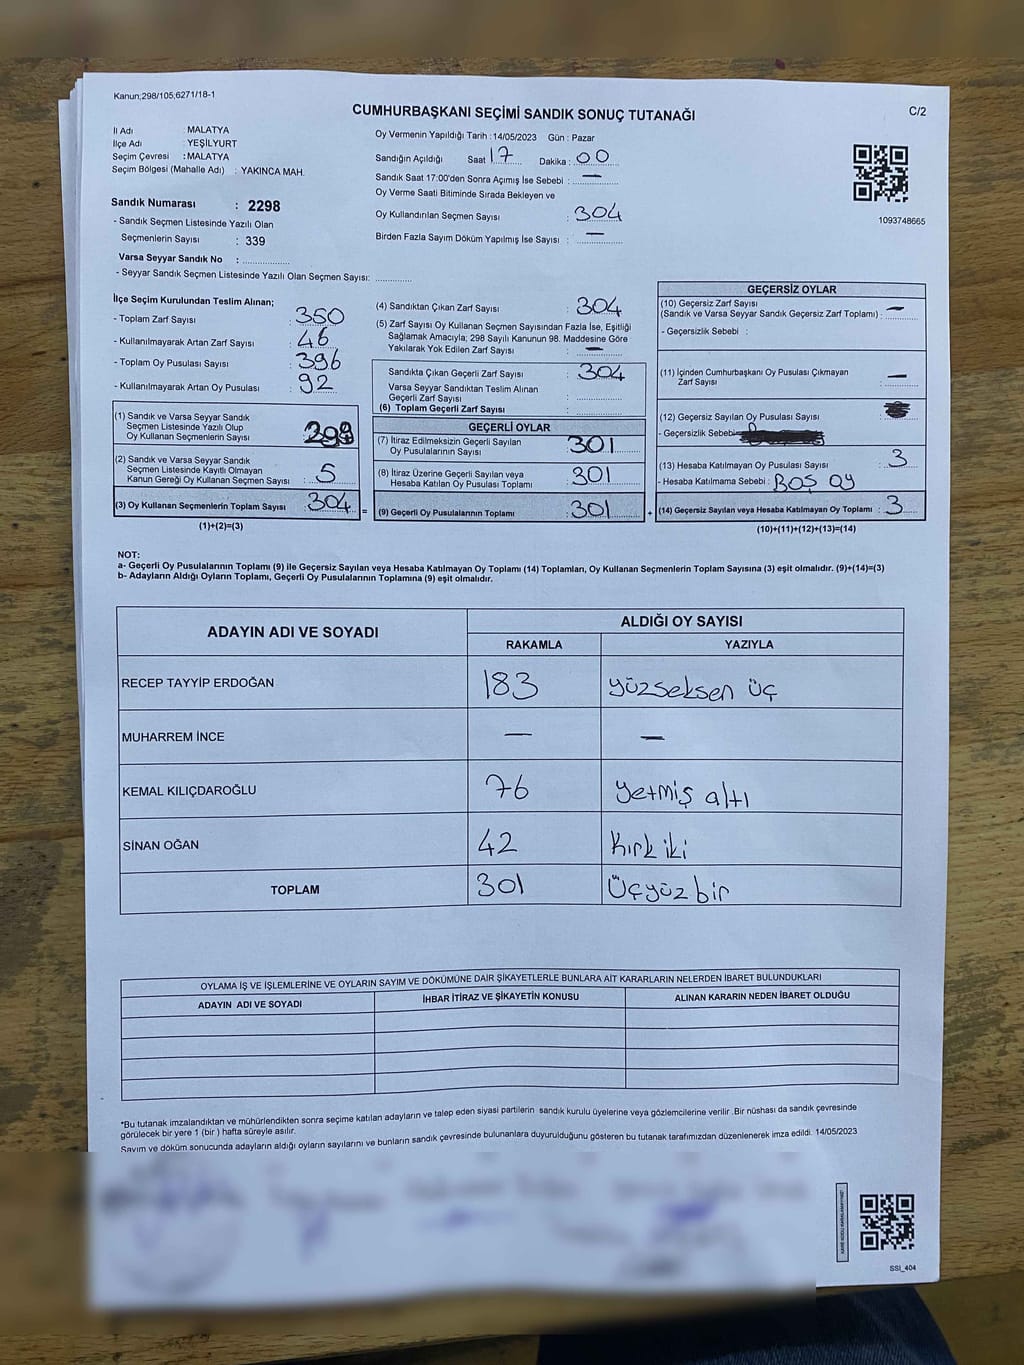 Kanun;298/105,6271/18-1
CUMHURBAŞKANI SEÇİMİ SANDIK SONUÇ TUTANAĞI
C/2
İl Adı : MALATYA
İlçe Adı : YEŞİLYURT
Seçim Çevresi : MALATYA
Seçim Bölgesi (Mahalle Adı) : YAKINCA MAH.
Oy Vermenin Yapıldığı Tarih :14/05/2023 Gün : Pazar
Sandığın Açıldığı Saat 17 Dakika : 00
Sandık Saat 17:00'den Sonra Açımış İse Sebebi : —
Oy Verme Saati Bitiminde Sırada Bekleyen ve
Oy Kullandırılan Seçmen Sayısı : 304
Birden Fazla Sayım Döküm Yapılmış İse Sayısı : —
1093748665
Sandık Numarası : 2298
- Sandık Seçmen Listesinde Yazılı Olan
Seçmenlerin Sayısı : 339
Varsa Seyyar Sandık No :
- Seyyar Sandık Seçmen Listesinde Yazılı Olan Seçmen Sayısı:
İlçe Seçim Kurulundan Teslim Alınan;
- Toplam Zarf Sayısı : 350
- Kullanılmayarak Artan Zarf Sayısı : 46
- Toplam Oy Pusulası Sayısı : 396
- Kullanılmayarak Artan Oy Pusulası : 92
(1) Sandık ve Varsa Seyyar Sandık
Seçmen Listesinde Yazılı Olup
Oy Kullanan Seçmenlerin Sayısı :
(2) Sandık ve Varsa Seyyar Sandık
Seçmen Listesinde Kayıtlı Olmayan
Kanun Gereği Oy Kullanan Seçmen Sayısı : 5
(3) Oy Kullanan Seçmenlerin Toplam Sayısı : 304
(1)+(2)=(3)
(4) Sandıktan Çıkan Zarf Sayısı : 304
(5) Zarf Sayısı Oy Kullanan Seçmen Sayısından Fazla İse, Eşitliği
Sağlamak Amacıyla; 298 Sayılı Kanunun 98. Maddesine Göre
Yakılarak Yok Edilen Zarf Sayısı : —
Sandıkta Çıkan Geçerli Zarf Sayısı : 304
Varsa Seyyar Sandıktan Teslim Alınan
Geçerli Zarf Sayısı :
(6) Toplam Geçerli Zarf Sayısı :
GEÇERLİ OYLAR
(7) İtiraz Edilmeksizin Geçerli Sayılan
Oy Pusulalarının Sayısı : 301
(8) İtiraz Üzerine Geçerli Sayılan veya
Hesaba Katılan Oy Pusulası Toplamı : 301
= (9) Geçerli Oy Pusulalarının Toplamı : 301
GEÇERSİZ OYLAR
(10) Geçersiz Zarf Sayısı
(Sandık ve Varsa Seyyar Sandık Geçersiz Zarf Toplamı) : —
- Geçersizlik Sebebi :
(11) İçinden Cumhurbaşkanı Oy Pusulası Çıkmayan
Zarf Sayısı : —
(12) Geçersiz Sayılan Oy Pusulası Sayısı :
- Geçersizlik Sebebi
(13) Hesaba Katılmayan Oy Pusulası Sayısı : 3
- Hesaba Katılmama Sebebi : BOŞ OY
+ (14) Geçersiz Sayılan veya Hesaba Katılmayan Oy Toplamı : 3
(10)+(11)+(12)+(13)=(14)
NOT:
a- Geçerli Oy Pusulalarının Toplamı (9) ile Geçersiz Sayılan veya Hesaba Katılmayan Oy Toplamı (14) Toplamları, Oy Kullanan Seçmenlerin Toplam Sayısına (3) eşit olmalıdır. (9)+(14)=(3)
b- Adayların Aldığı Oyların Toplamı, Geçerli Oy Pusulalarının Toplamına (9) eşit olmalıdır.
ADAYIN ADI VE SOYADI
ALDIĞI OY SAYISI
RAKAMLA YAZIYLA
RECEP TAYYİP ERDOĞAN 183 yüzseksen üç
MUHARREM İNCE — —
KEMAL KILIÇDAROĞLU 76 yetmiş altı
SİNAN OĞAN 42 kırk iki
TOPLAM 301 Üçyüz bir
OYLAMA İŞ VE İŞLEMLERİNE VE OYLARIN SAYIM VE DÖKÜMÜNE DAİR ŞİKAYETLERLE BUNLARA AİT KARARLARIN NELERDEN İBARET BULUNDUKLARI
ADAYIN ADI VE SOYADI İHBAR İTİRAZ VE ŞİKAYETİN KONUSU ALINAN KARARIN NEDEN İBARET OLDUĞU
*Bu tutanak imzalandıktan ve mühürlendikten sonra seçime katılan adayların ve talep eden siyasi partilerin sandık kurulu üyelerine veya gözlemcilerine verilir .Bir nüshası da sandık çevresinde
görülecek bir yere 1 (bir ) hafta süreyle asılır.
Sayım ve döküm sonucunda adayların aldığı oyların sayılarını ve bunların sandık çevresinde bulunanlara duyurulduğunu gösteren bu tutanak tarafımızdan düzenlenerek imza edildi. 14/05/2023
SSI_404